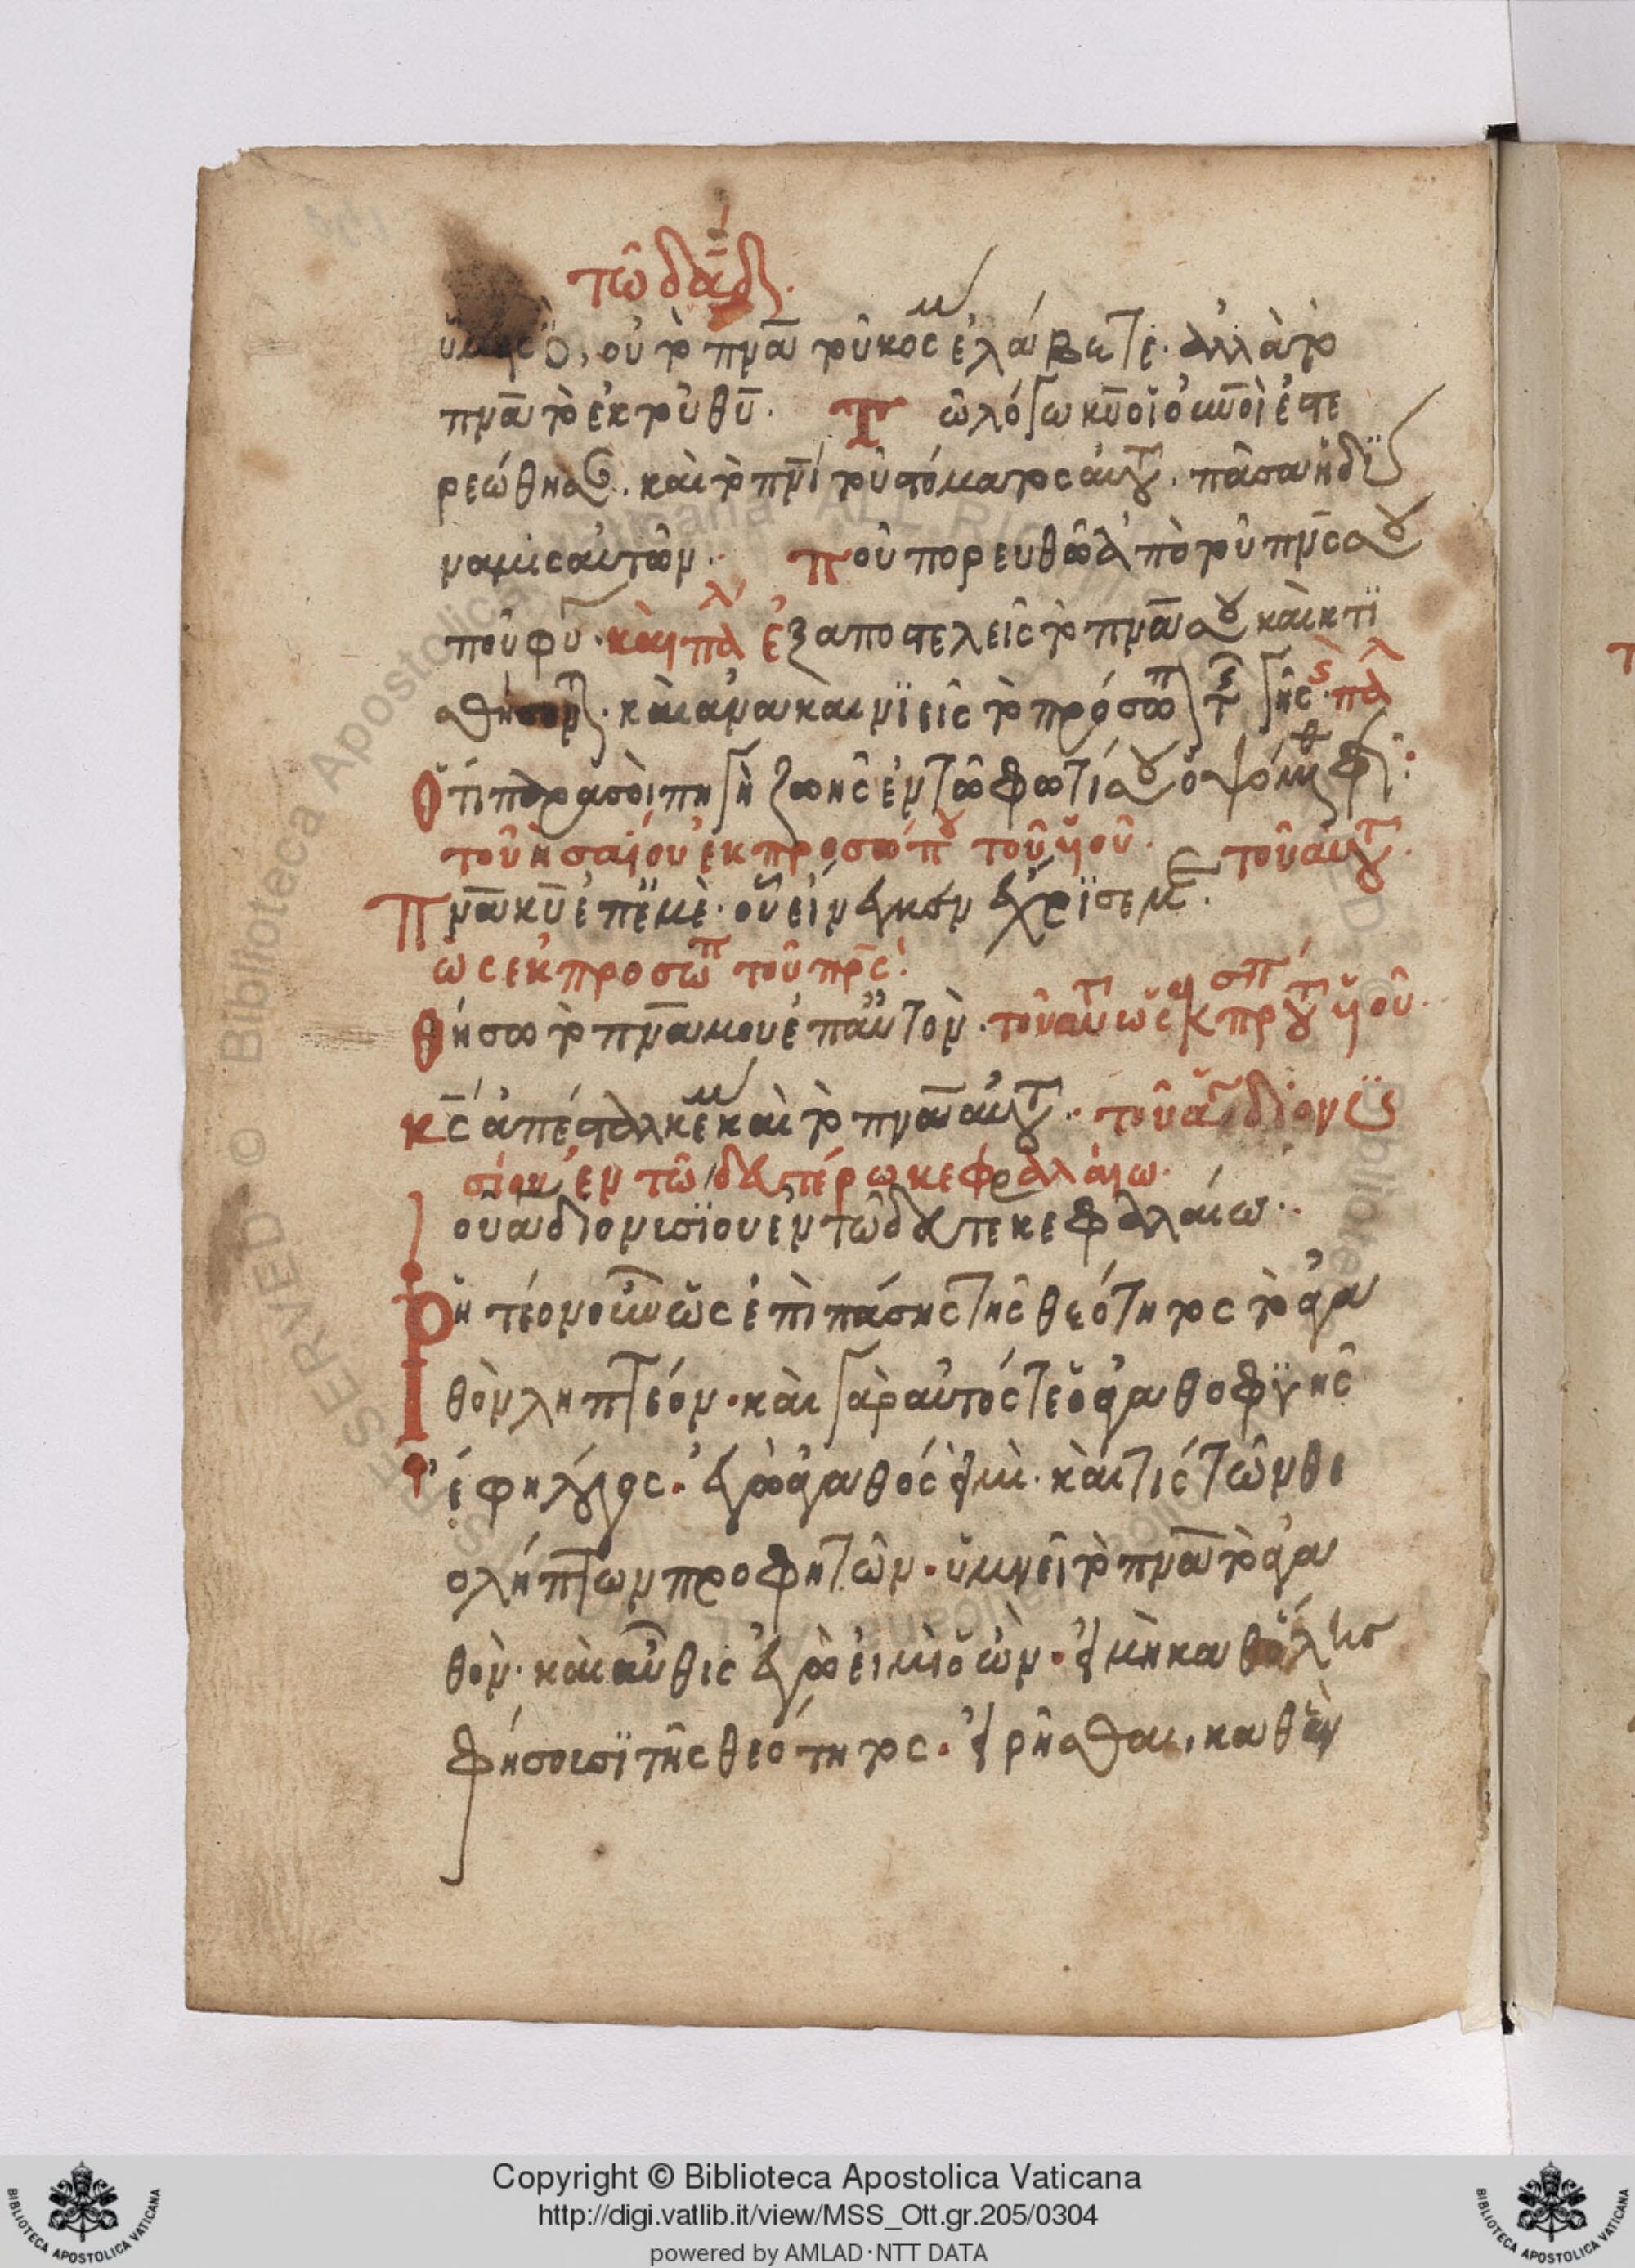 τῶ δαδ.
ὑμεῖς δὲ, οὐ τὸ πνᾶ τοῦ κόσμ ἐλάβετε. ἀλλὰ τὸ
πνᾶ τὸ ἐκ τοῦ θῦ. Τῶ λόγω κῦ οἱ οὐνοὶ ἐστε
ρεώθησαν. καὶ τῶ πνι τοῦ στόματος αὐτοῦ. πᾶσα ἡ δύ
ναμις αὐτῶν. ποῦ πορευθῶ ἀπὸ τοῦ πνς σου
ποῦ φύ. καὶ πάλ ἐξαποστελεῖς τὸ πνᾶ σου καὶ κτι
σθήσον. καὶ ἀνακαινιεῖς τὸ πρόσωπ τῆς γῆς. πάλ
Ὅτι παρὰ σοὶ πηγὴ ζωῆς ἐν τῶ φωτί σου ὀψόμεθ φῶς:
τοῦ ἡσαΐου ἐκ προσώπου τοῦ υἱοῦ. τοῦ αὐτοῦ.
Πνᾶ κῦ ἐπ ἐμὲ. οὗ εἵνεκεν ἔχρισέ με.
ὡς ἐκ προσώπ τοῦ πρς:
Θήσω τὸ πνᾶ μου ἐπ αὐτὸν. τοῦ αὐτ ὡς ἐκ προσπ τοῦ υἱοῦ.
κς ἀπέσταλκέ με καὶ τὸ πνᾶ αὐτοῦ. τοῦ ἁ διονυ
σίου ἐν τῶ δευτέρω κεφαλαίω.
ουα διονισίου ἐν τῶ δευτε κεφαλαίω.
ρητέον οὖν ὡς ἐπὶ πάσης τῆς θεότητος τὸ ἀγα
θὸν ληπτέον. καὶ γὰρ αὐτός τε ὁ ἀγαθοφυὴς
ἔφη λόγος. ἐγὼ ἀγαθός εἰμι. καί τις τῶν θε
ολήπτων προφητῶν. ὑμνεῖ τὸ πνᾶ τὸ ἀγα
θὸν. καὶ αὖθις ἐγὼ εἰμὶ ὁ ὢν. εἰ μὴ καθ ὅλης
φήσουσι τῆς θεότητος. εἰρῆσθαι, καθ ἓν
Copyright © Biblioteca Apostolica Vaticana
http://digi.vatlib.it/view/MSS_Ott.gr.205/0304
powered by AMLAD·NTT DATA